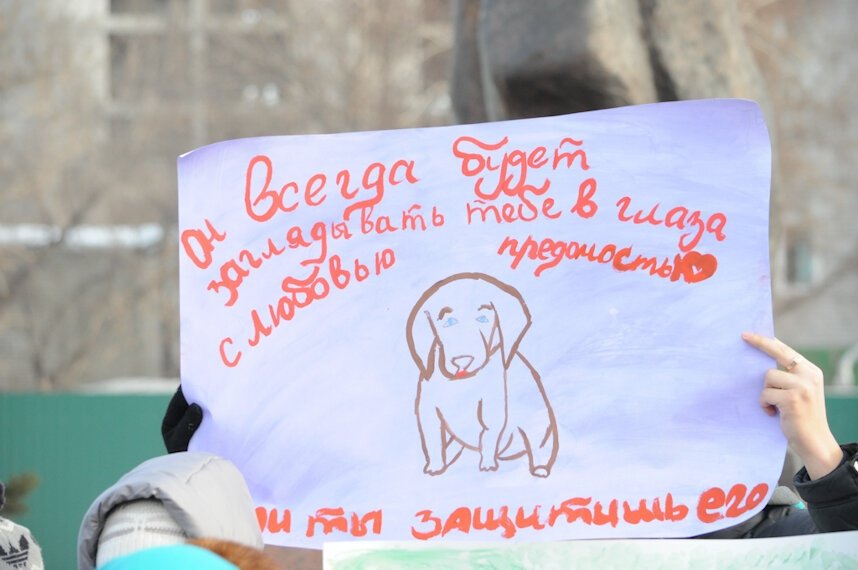 Он всегда будет
заглядывать тебе в глаза
с любовью преданостью
ли ты защитишь его